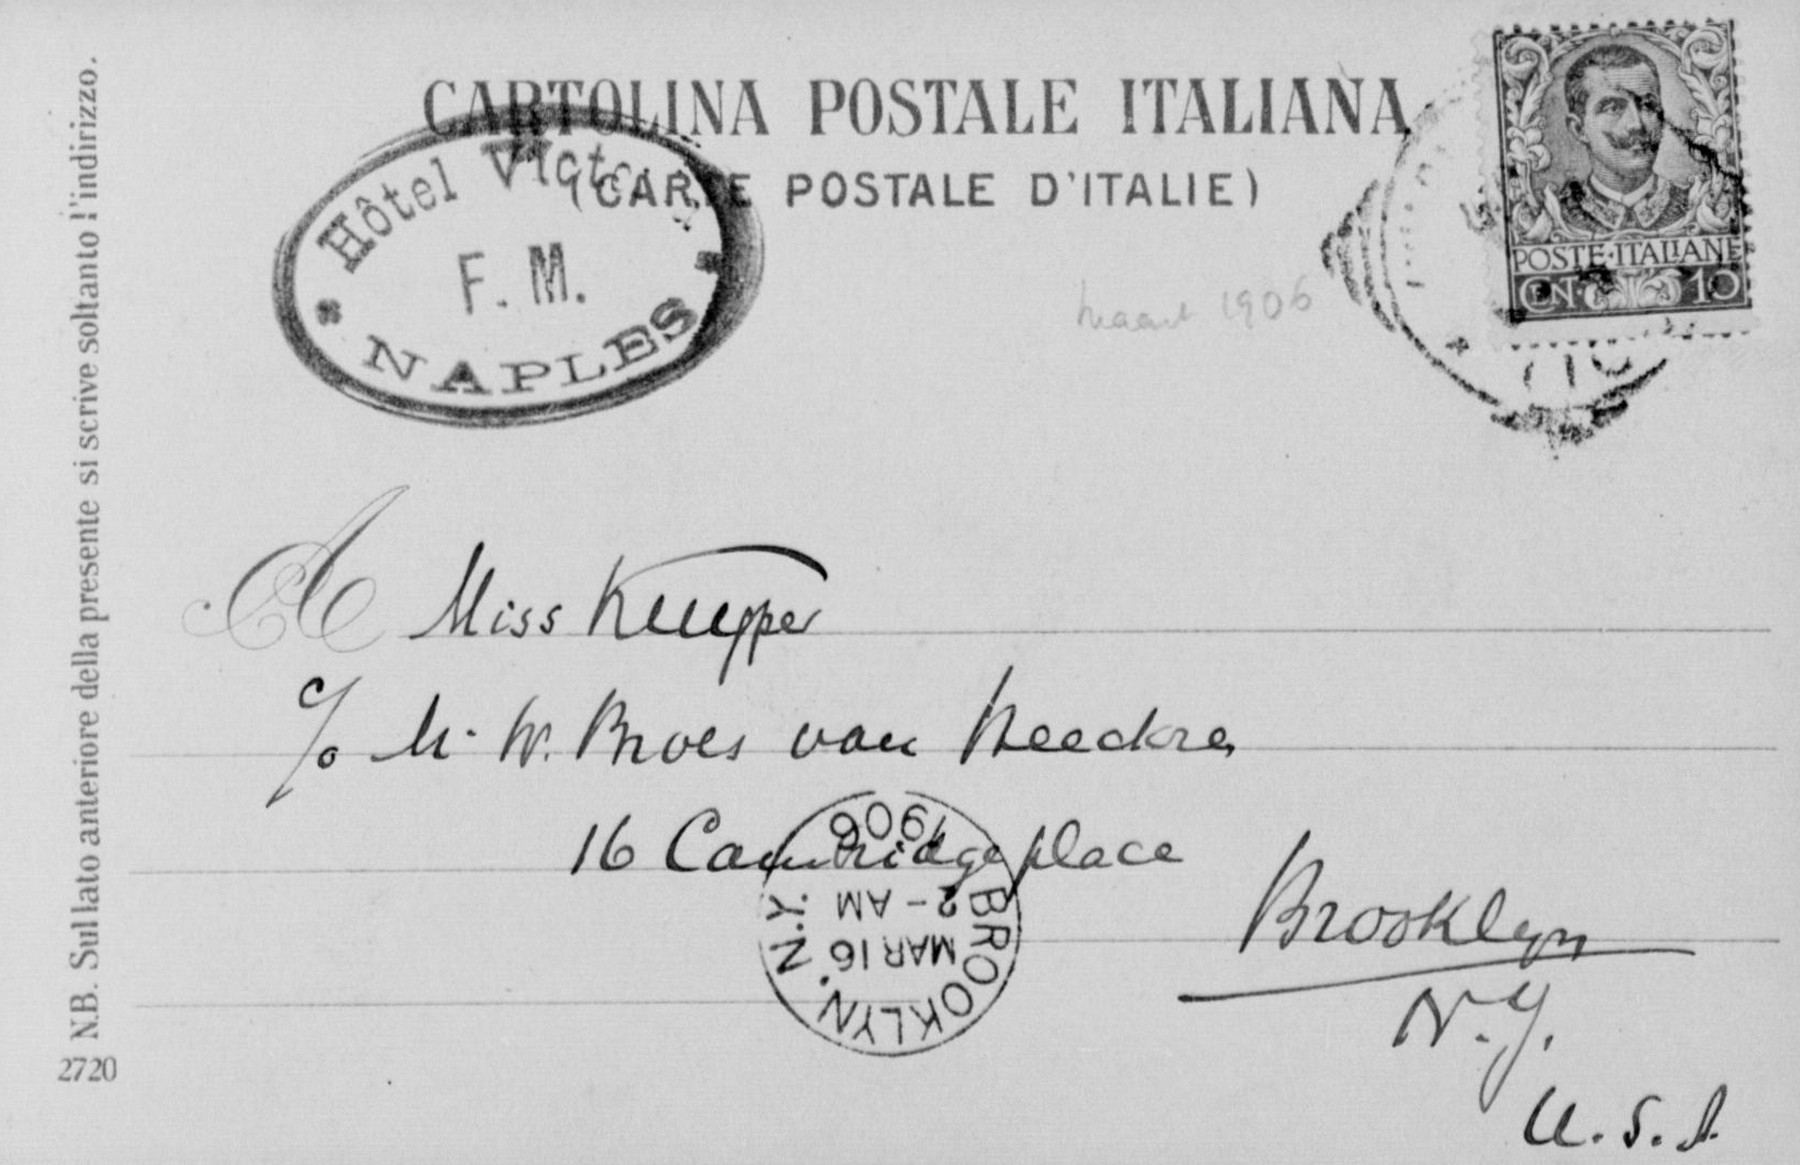 CARTOLINA POSTALE ITALIANA
(CARTE POSTALE D'ITALIE)
Hôtel Victoria
F. M.
NAPLES
POSTE·ITALIANE
CEN· 10
Maart 1906
A Miss Kuyper
c/o Mr. W. Broes van Heeckren
16 Cambridge place
Brooklyn
N.Y.
U.S.A.
BROOKLYN, N.Y.
MAR 16
2-AM
1906
N.B. Sul lato anteriore della presente si scrive soltanto l'indirizzo.
2720